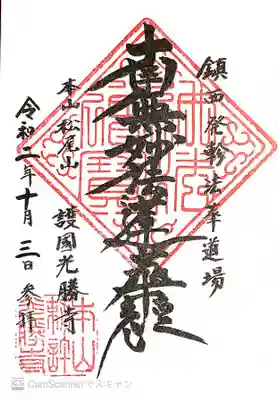 鎮西発軫法華道場
南無妙法蓮華経
本山松尾山 護國光勝寺
令和二年十月三日 参拝
本山
CS CamScannerでスキャン